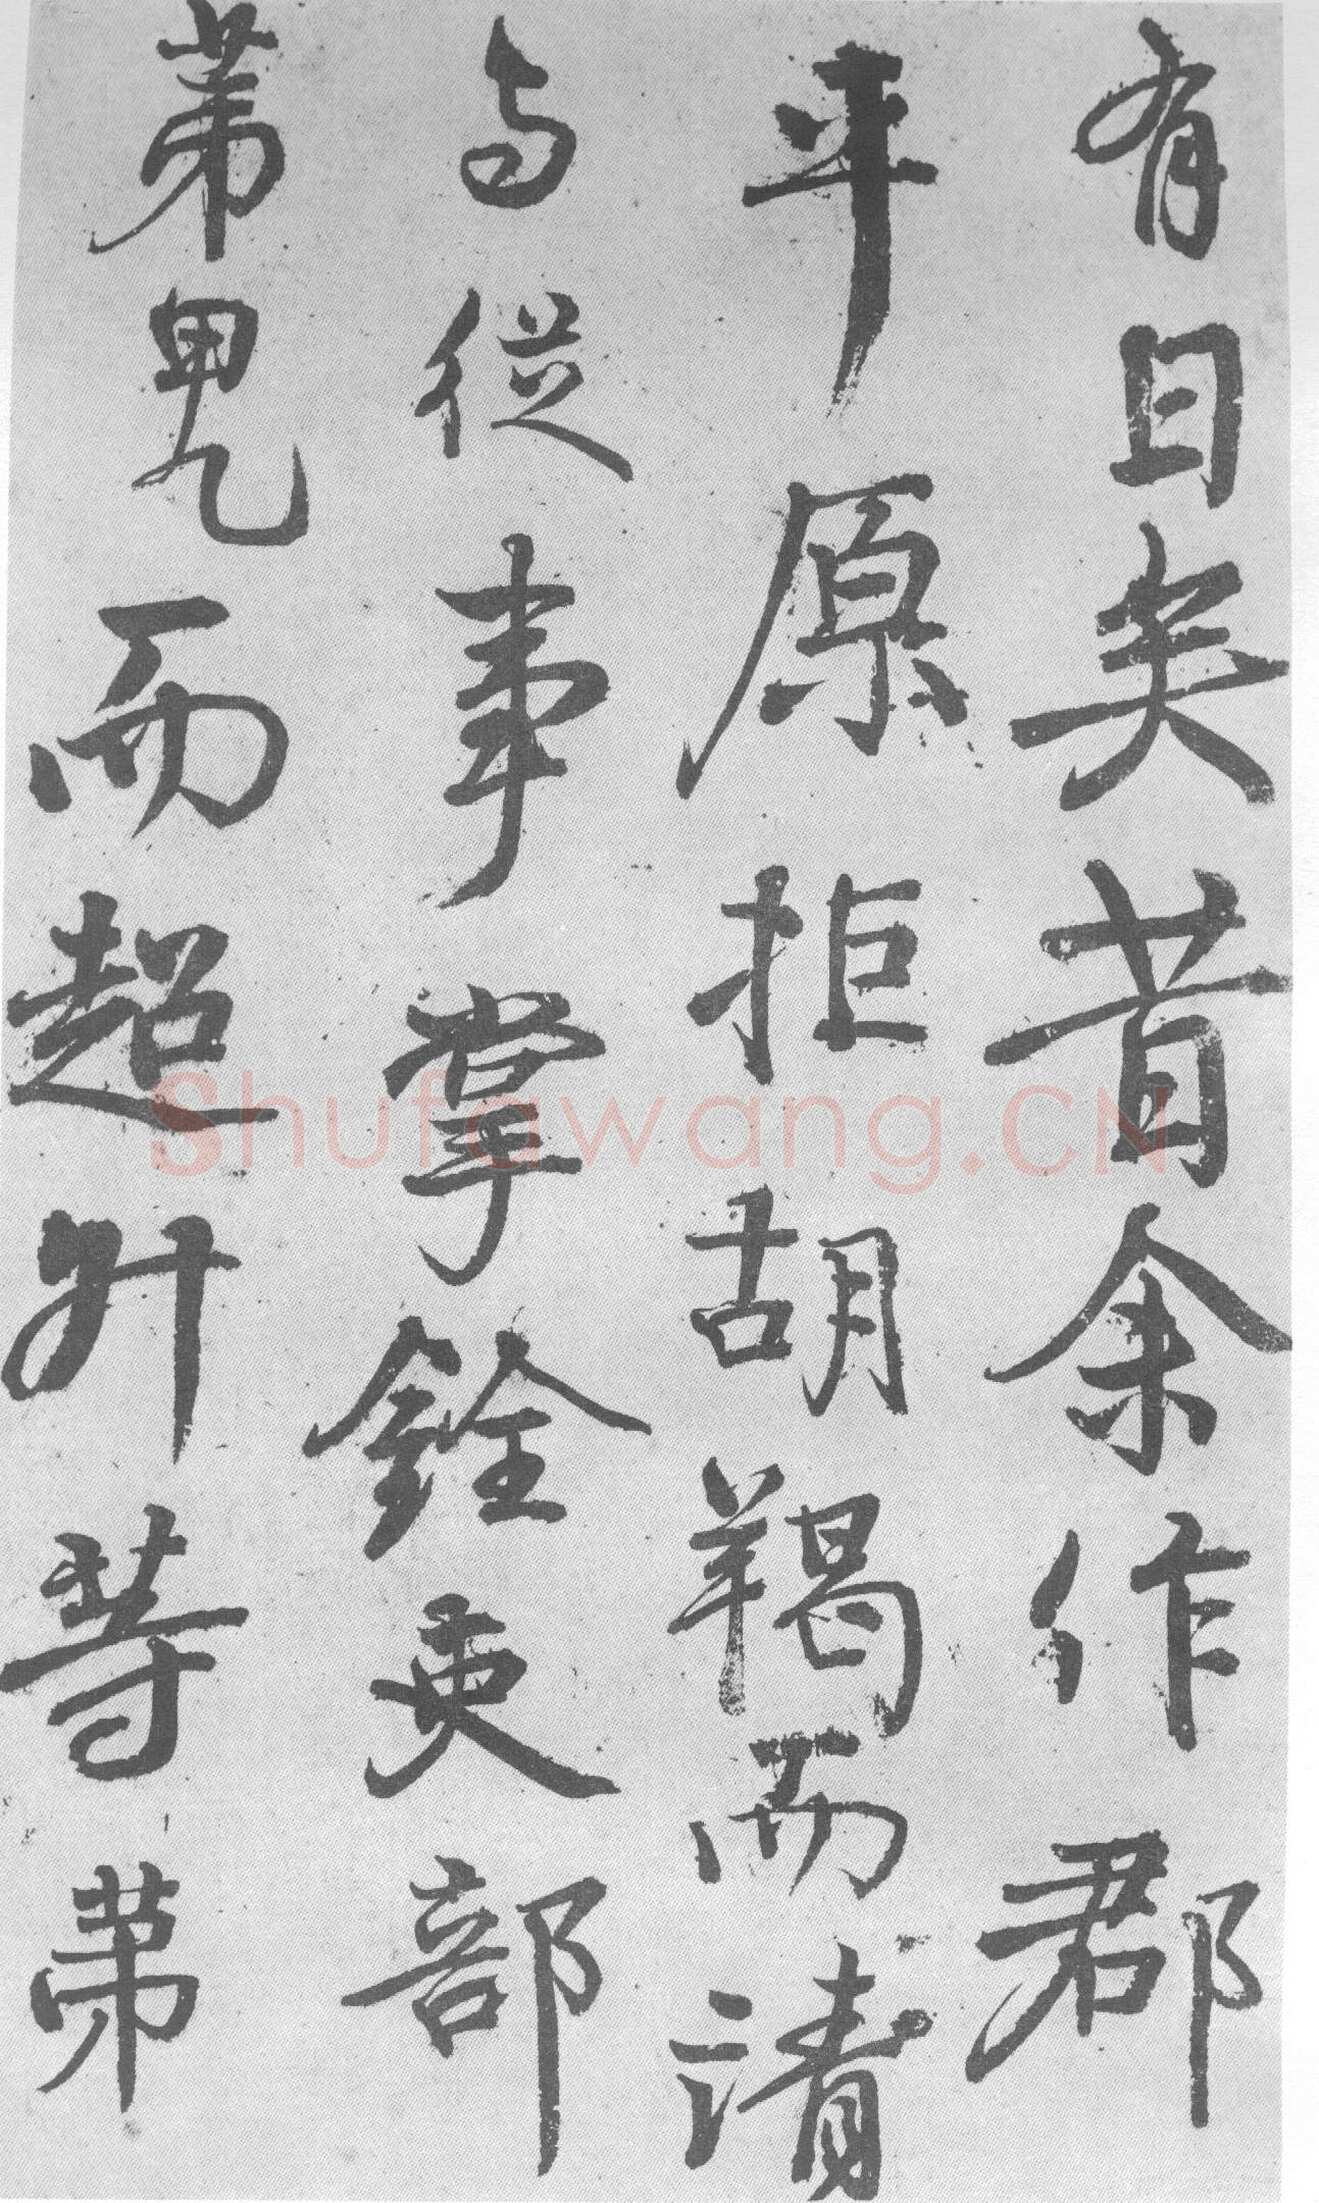 有日矣昔余作郡
平原拒胡羯而请
与従事掌銓吏部
第甲乙而超升等第
Shufawang.CN